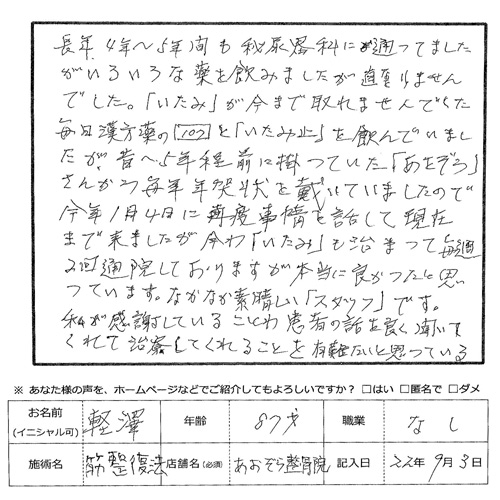 長年4年〜5年間も秘尿器科に通ってました
がいろいろな薬を飲みましたが直りません
でした。「いたみ」が今まで取れませんでした
毎日漢方薬の102と「いたみ止」を飲んでいまし
たが、昔〜5年程前に掛っていた「あおぞら」
さんから毎年年賀状を戴いていましたので
今年1月4日に再度事情を話して現在
まで来ましたが今わ「いたみ」も治まって毎週
2回通院しておりますが本当に良かったと思
っています。なかなか素晴しい「スタッフ」です。
私が感謝していることわ患者の話を良く聞いて
くれて治療してくれることを有難たいと思っている
※ あなた様の声を、ホームページなどでご紹介してもよろしいですか? □はい □匿名で □ダメ
お名前 (イニシャル可) 軽澤 年齢 87才 職業 なし
施術名 筋整復法 店舗名(必須) あおぞら整骨院 記入日 22年9月3日